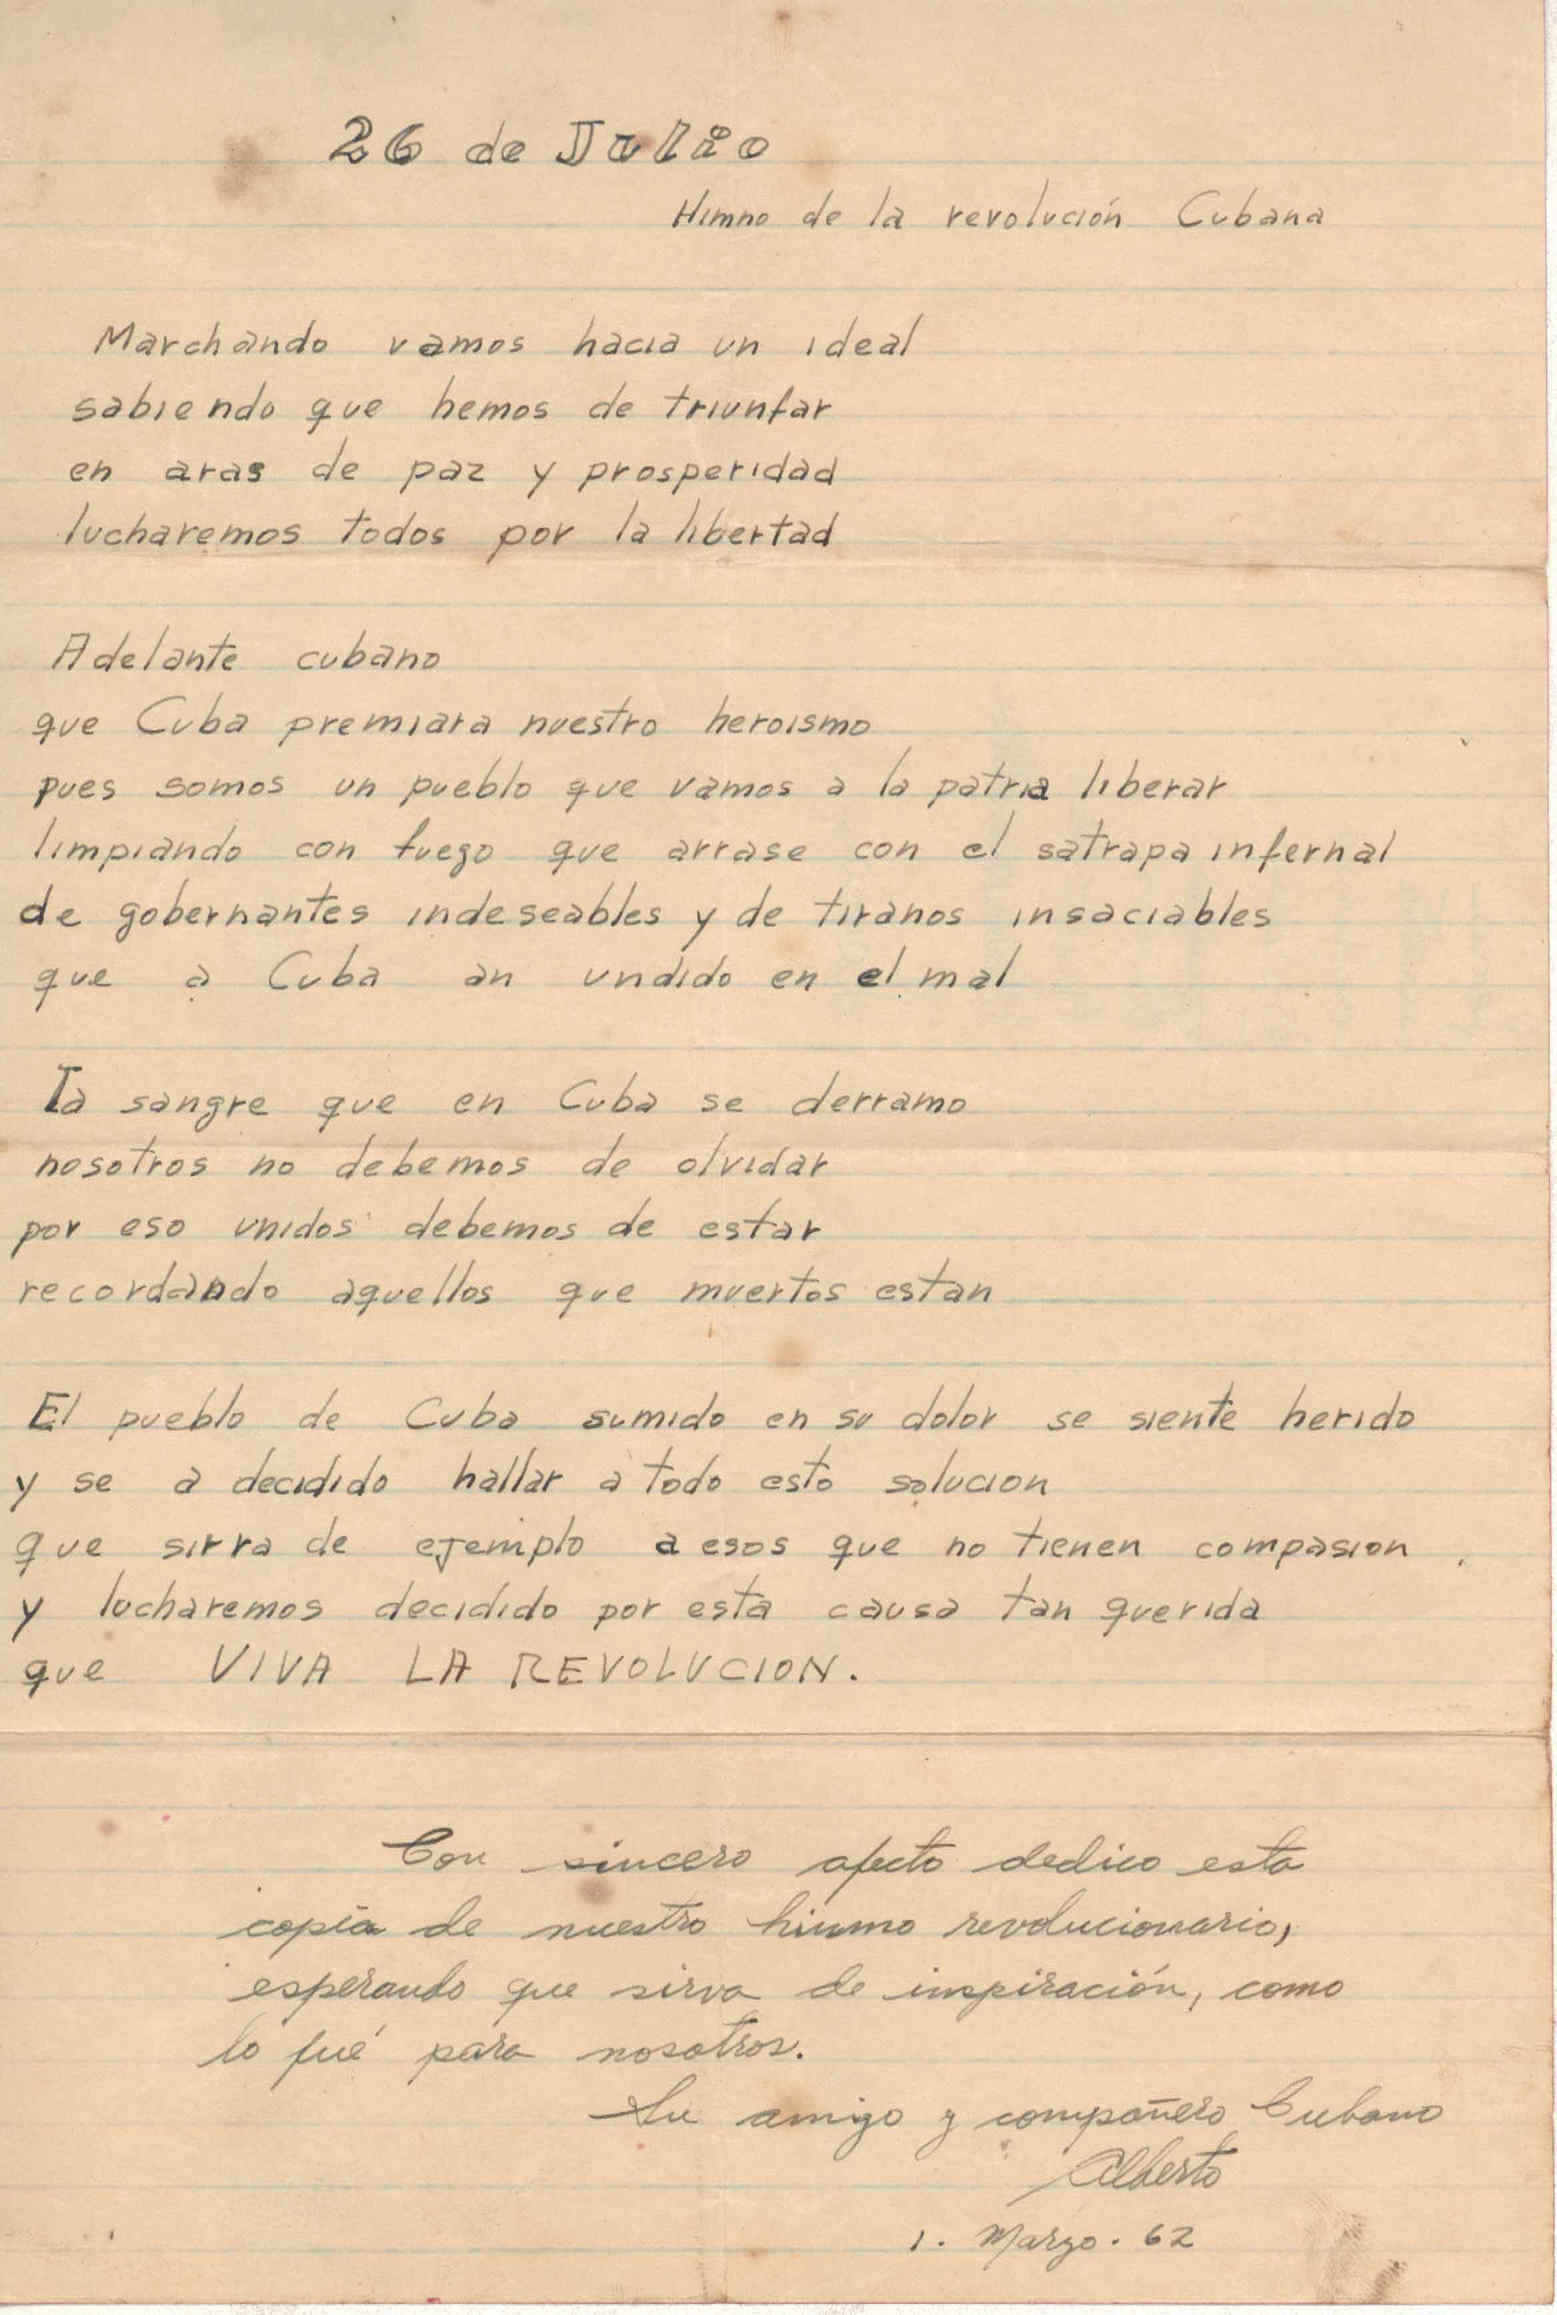 26 de Julio
Himno de la revolución Cubana
Marchando vamos hacia un ideal
sabiendo que hemos de triunfar
en aras de paz y prosperidad
lucharemos todos por la libertad
Adelante cubano
que Cuba premiara nuestro heroismo
pues somos un pueblo que vamos a la patria liberar
limpiando con fuego que arrase con el satrapa infernal
de gobernantes indeseables y de tiranos insaciables
que a Cuba an undido en el mal
La sangre que en Cuba se derramo
nosotros no debemos de olvidar
por eso unidos debemos de estar
recordando aquellos que muertos estan
El pueblo de Cuba sumido en su dolor se siente herido
y se a decidido hallar a todo esto solucion
que sirra de ejemplo a esos que no tienen compasion
y lucharemos decidido por esta causa tan querida
que VIVA LA REVOLUCION.
Con sincero afecto dedico esta
copia de nuestro himno revolucionario,
esperando que sirva de inspiración, como
lo fué para nosotros.
Su amigo y compañero Cubano
Alberto
1. Marzo. 62